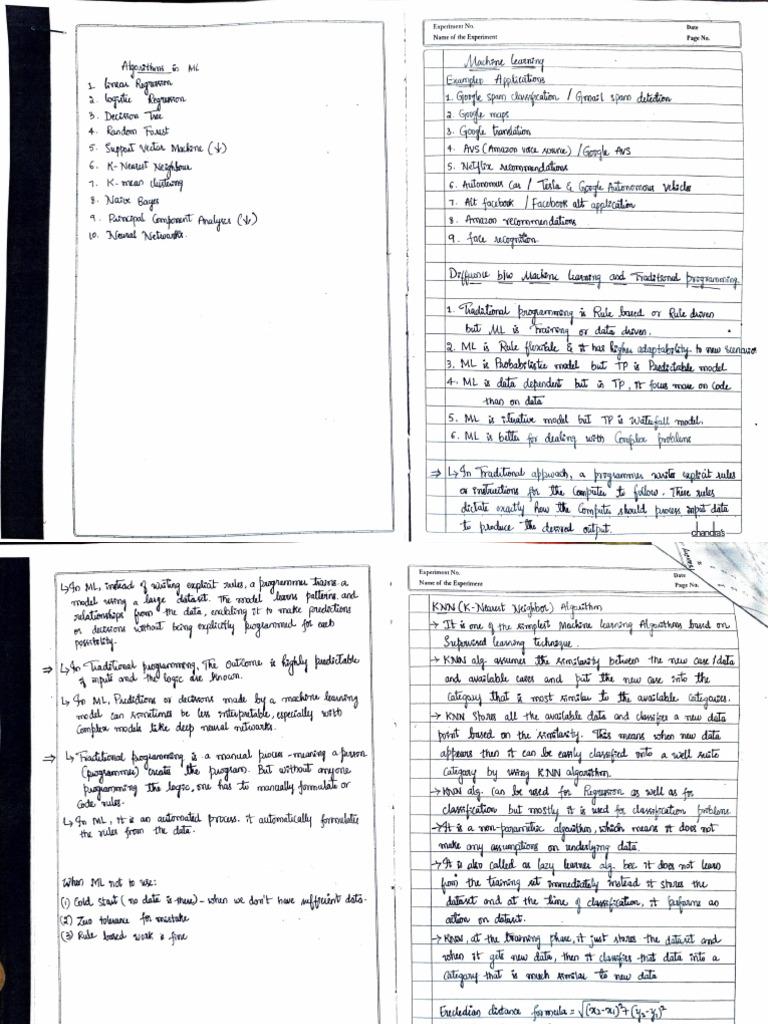 Algorithms in ML
1. Linear Regression
2. Logistic Regression
3. Decision Tree
4. Random Forest
5. Support Vector Machine (↓)
6. K-Nearest Neighbour
7. K-mean clustering
8. Naive Bayes
9. Principal Component Analyses (↓)
10. Neural Networks.
Experiment No.
Date
Name of the Experiment
Page No.
Machine Learning
Examples Applications
1. Google spam classification / Gmail spam detection
2. Google maps
3. Google translation
4. AVS (Amazon voice service) / Google AVS
5. Netflix recommendations
6. Autonomus Car / Tesla & Google Autonomous Vehicle
7. Alt facebook / Facebook alt application
8. Amazon recommendations
9. face recognition
Difference b/w Machine Learning and Traditional programming.
1. Traditional programming is Rule based or Rule driven
but ML is Training or data driven.
2. ML is Rule flexible & it has higher adaptability to new scenarios
3. ML is Probabilistic model but TP is Predictable model
4. ML is data dependent but in TP, it focus more on code
than on data
5. ML is iterative model but TP is Waterfall model.
6. ML is better for dealing with Complex problems
⇒ ↳ In Traditional approach, a programmer writes explicit rules
or instructions for the Computer to follow. These rules
dictate exactly how the Computer should process input data
to produce the desired output.
chandra's
↳ In ML, instead of writing explicit rules, a programmer trains a
model using a large dataset. The model learns patterns and
relationships from the data, enabling it to make predictions
or decisions without being explicitly programmed for each
possibility.
⇒ ↳ In Traditional programming, The outcome is highly predictable
if inputs and the logic are known.
↳ In ML, Predictions or decisions made by a machine learning
model can sometimes be less interpretable, especially with
Complex models like deep neural networks.
⇒ ↳ Traditional programming is a manual process - meaning a person
(programmer) creates the program. But without anyone
programming the logic, one has to manually formulate or
Code rules.
↳ In ML, it is an automated process. it automatically formulates
the rules from the data.
When ML not to use:
(1) Cold start (no data is there) - when we don't have sufficient data.
(2) Zero tolerance for mistake
(3) Rule based work is fine
Experiment No.
Date
Name of the Experiment
Page No.
KNN (K-Nearest Neighbor) Algorithm
→ It is one of the simplest Machine learning Algorithms based on
Supervised learning technique.
→ KNN alg. assumes the similarity between the new case/data
and available cases and put the new case into the
Category that is most similar to the available Categories.
→ KNN stores all the available data and classifies a new data
point based on the similarity. This means when new data
appears then it can be easily classified into a well suite
Category by using KNN algorithm
→ KNN alg. can be used for Regression as well as for
classification but mostly it is used for classification problems
→ It is a non-parametric algorithm, which means it does not
make any assumptions on underlying data.
→ It is also called as lazy learner alg. bec it does not learn
from the training set immediately instead it stores the
dataset and at the time of classification, it performs an
action on dataset.
→ KNN, at the training phase, it just stores the dataset and
when it gets new data, then it classifies that data into a
Category that is much similar to new data
Eucledian distance formula = √(x₂-x₁)²+(y₂-y₁)²